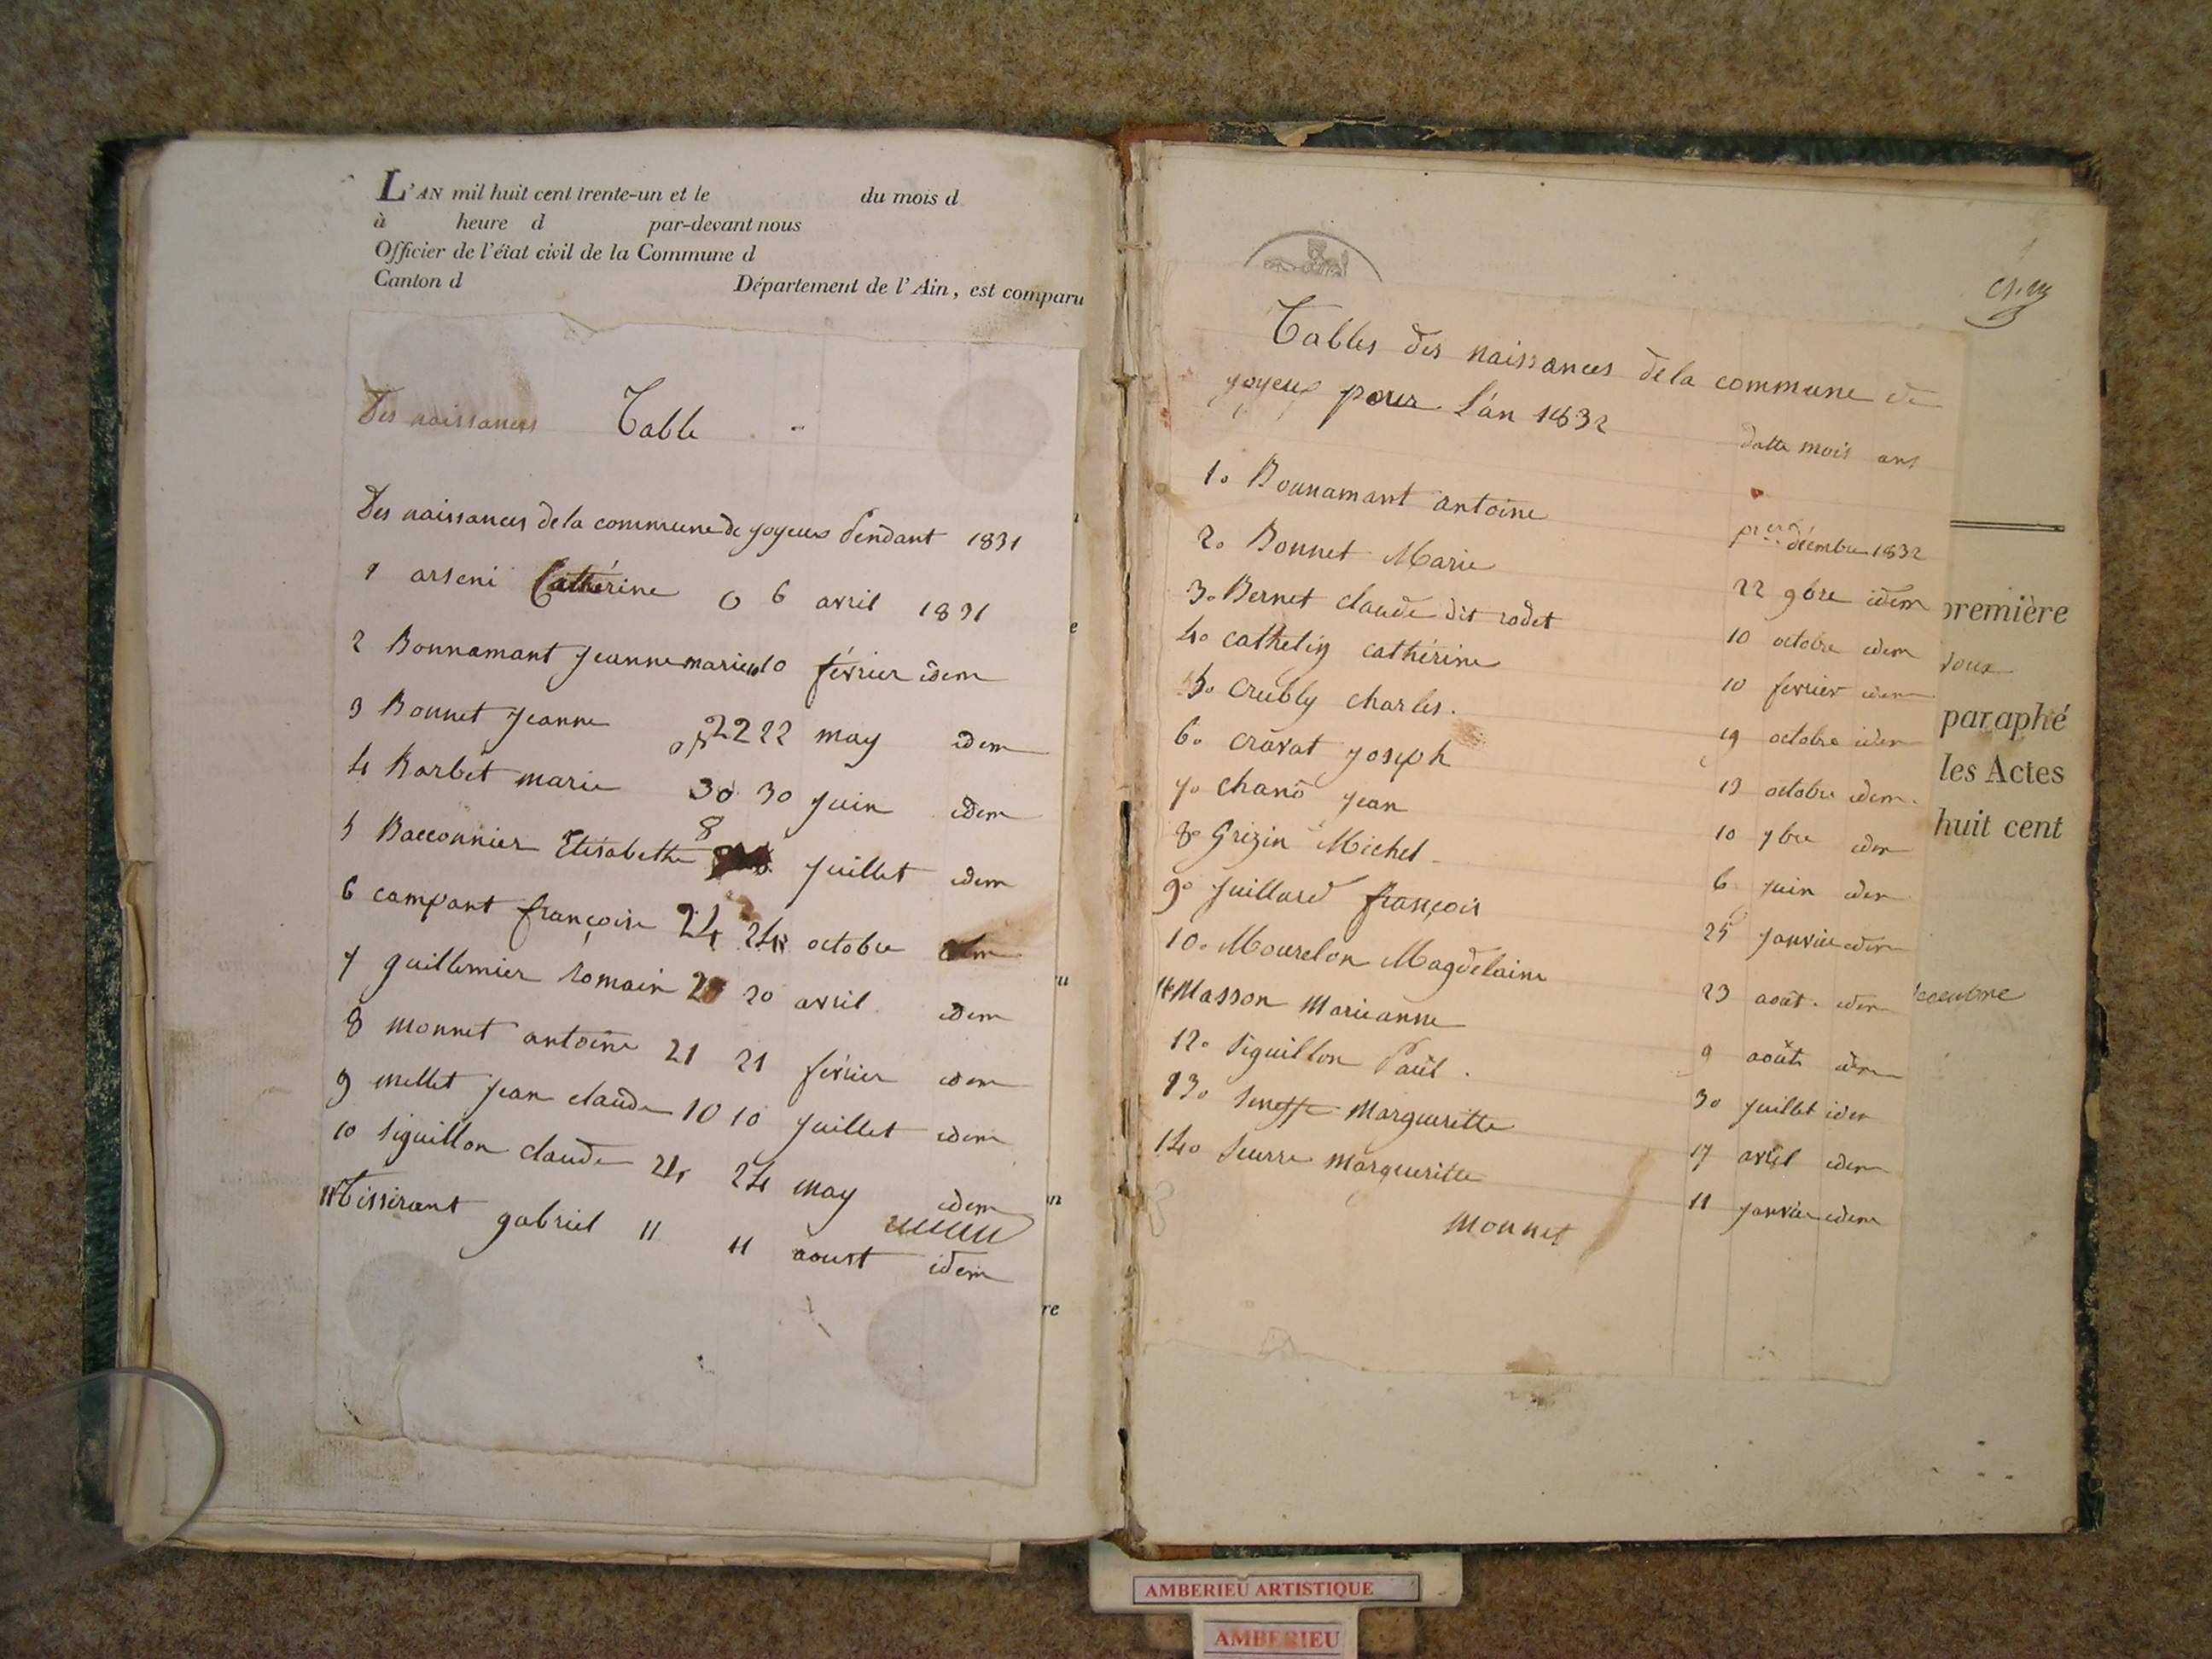 L'AN mil huit cent trente-un et le du mois d
à heure d par-devant nous
Officier de l'état civil de la Commune d
Canton d Département de l'Ain, est comparu
Des naissances Table
Des naissances dela commune de joyeux Pendant 1831
1 arseni Cathérine 6 avril 1831
2 Bonnamant jeanne marie 10 février idem
3 Bonnet jeanne 22 22 may idem
4 Barbet marie 30 30 juin idem
5 Bacconnier Elisabeth 8 juillet idem
6 campant françoise 24 24 octobre idem
7 guillermier romain 20 20 avril idem
8 monnet antoine 21 21 février idem
9 mellet jean claude 10 10 juillet idem
10 siguillon claude 24 24 may idem
11 Tissirant gabriel 11 11 aoust idem
Tables des naissances dela commune de
joyeux pour l'an 1832
datte mois ans
1o Bonnamant antoine per décembre 1832
2o Bonnet Marie 22 9bre idem
3o Bernet claude dit rodet 10 octobre idem
4o cathelin cathérine 10 fevrier idem
5o creubly charles. 19 octobre idem
6o cravat joseph 13 octobre idem.
7o chanô jean 10 7bre idem
8o Grizin Michel 6 juin idem
9o juillard françois 25 janvier idem
10o Mourelon Magdelaine 23 août. idem
11o Masson Marieanne 9 août idem
12o siguillon Paul. 30 juillet idem
13o Margueritte 17 avril idem
14o seurre margueritte 11 janvier idem
monnet
première
paraphé
les Actes
huit cent
AMBERIEU ARTISTIQUE
AMBERIEU